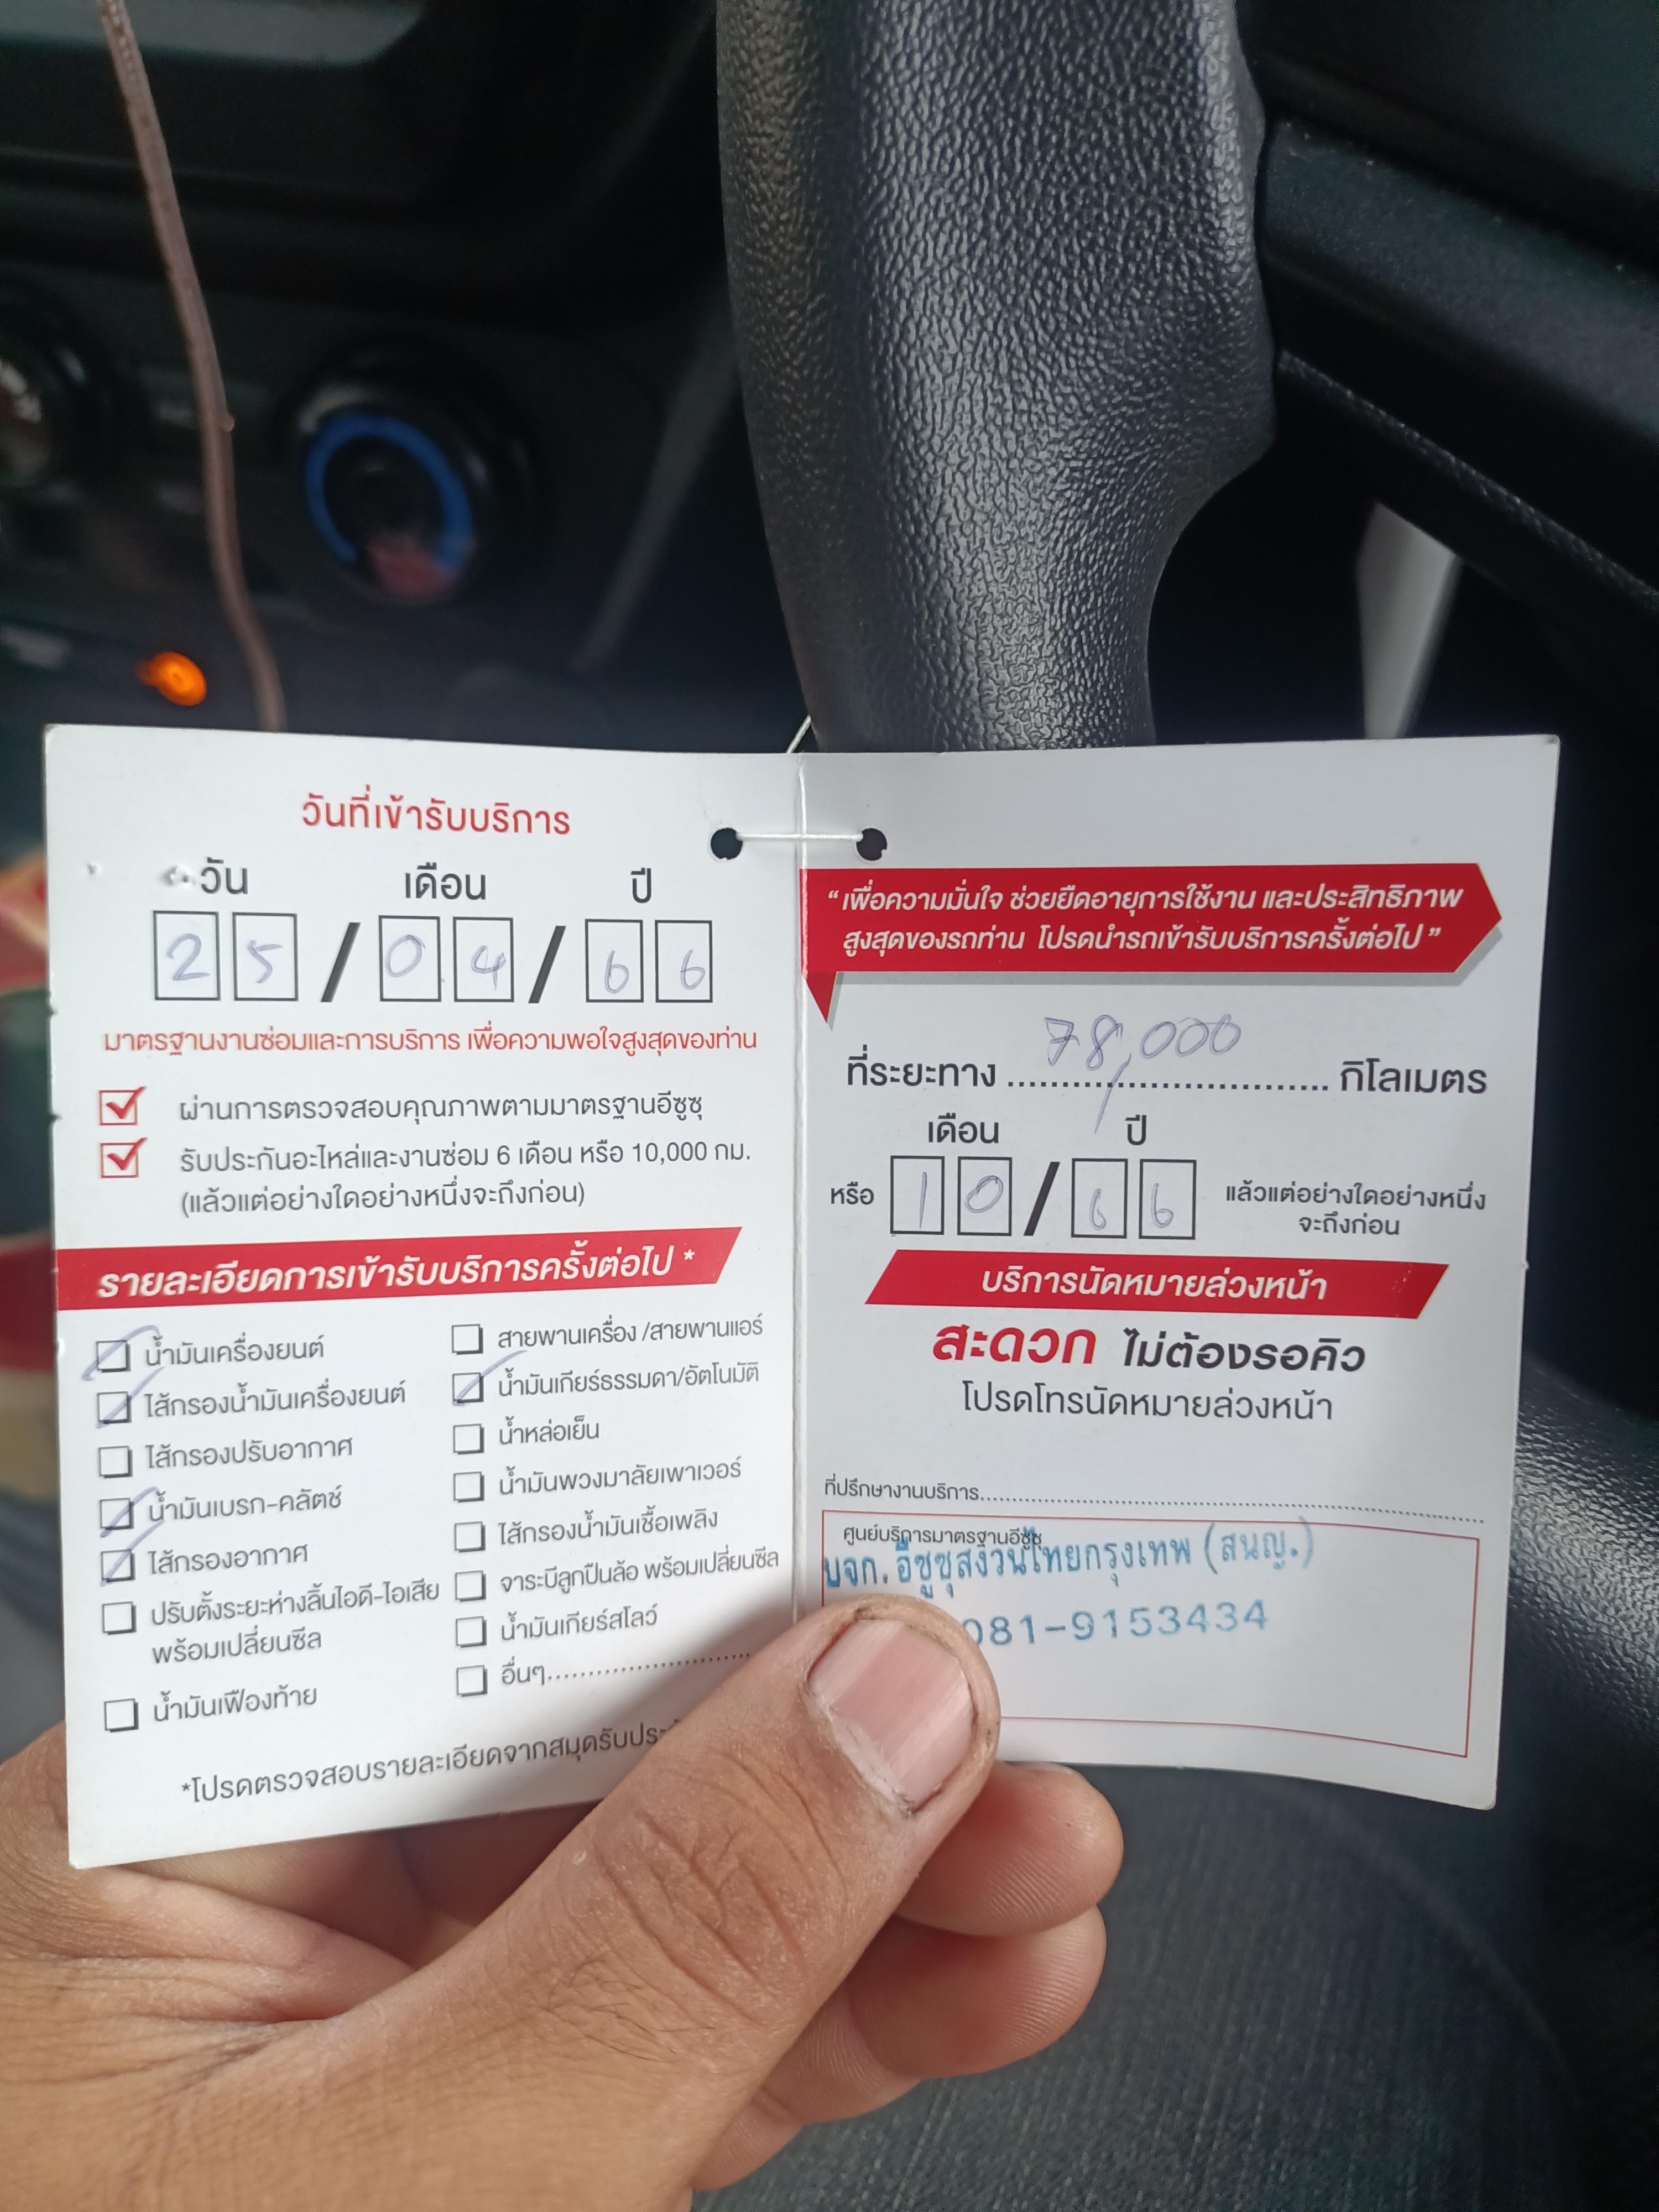 วันที่เข้ารับบริการ
วัน เดือน ปี
25/04/66
มาตรฐานงานซ่อมและการบริการ เพื่อความพอใจสูงสุดของท่าน
ผ่านการตรวจสอบคุณภาพตามมาตรฐานอีซูซุ
รับประกันอะไหล่และงานซ่อม 6 เดือน หรือ 10,000 กม.
(แล้วแต่อย่างใดอย่างหนึ่งจะถึงก่อน)
รายละเอียดการเข้ารับบริการครั้งต่อไป *
น้ำมันเครื่องยนต์
ไส้กรองน้ำมันเครื่องยนต์
ไส้กรองปรับอากาศ
น้ำมันเบรก-คลัตช์
ไส้กรองอากาศ
ปรับตั้งระยะห่างลิ้นไอดี-ไอเสีย
พร้อมเปลี่ยนซีล
น้ำมันเฟืองท้าย
สายพานเครื่อง /สายพานแอร์
น้ำมันเกียร์ธรรมดา/อัตโนมัติ
น้ำหล่อเย็น
น้ำมันพวงมาลัยเพาเวอร์
ไส้กรองน้ำมันเชื้อเพลิง
จาระบีลูกปืนล้อ พร้อมเปลี่ยนซีล
น้ำมันเกียร์สโลว์
อื่นๆ
*โปรดตรวจสอบรายละเอียดจากสมุด
“ เพื่อความมั่นใจ ช่วยยืดอายุการใช้งาน และประสิทธิภาพ
สูงสุดของรถท่าน โปรดนำรถเข้ารับบริการครั้งต่อไป ”
ที่ระยะทาง 78,000 กิโลเมตร
เดือน ปี
หรือ 10/66 แล้วแต่อย่างใดอย่างหนึ่ง
จะถึงก่อน
บริการนัดหมายล่วงหน้า
สะดวก ไม่ต้องรอคิว
โปรดโทรนัดหมายล่วงหน้า
ที่ปรึกษางานบริการ
ศูนย์บริการมาตรฐานอีซูซุ
บจก. อีซูซุสงวนไทยกรุงเทพ (สนญ.)
081-9153434